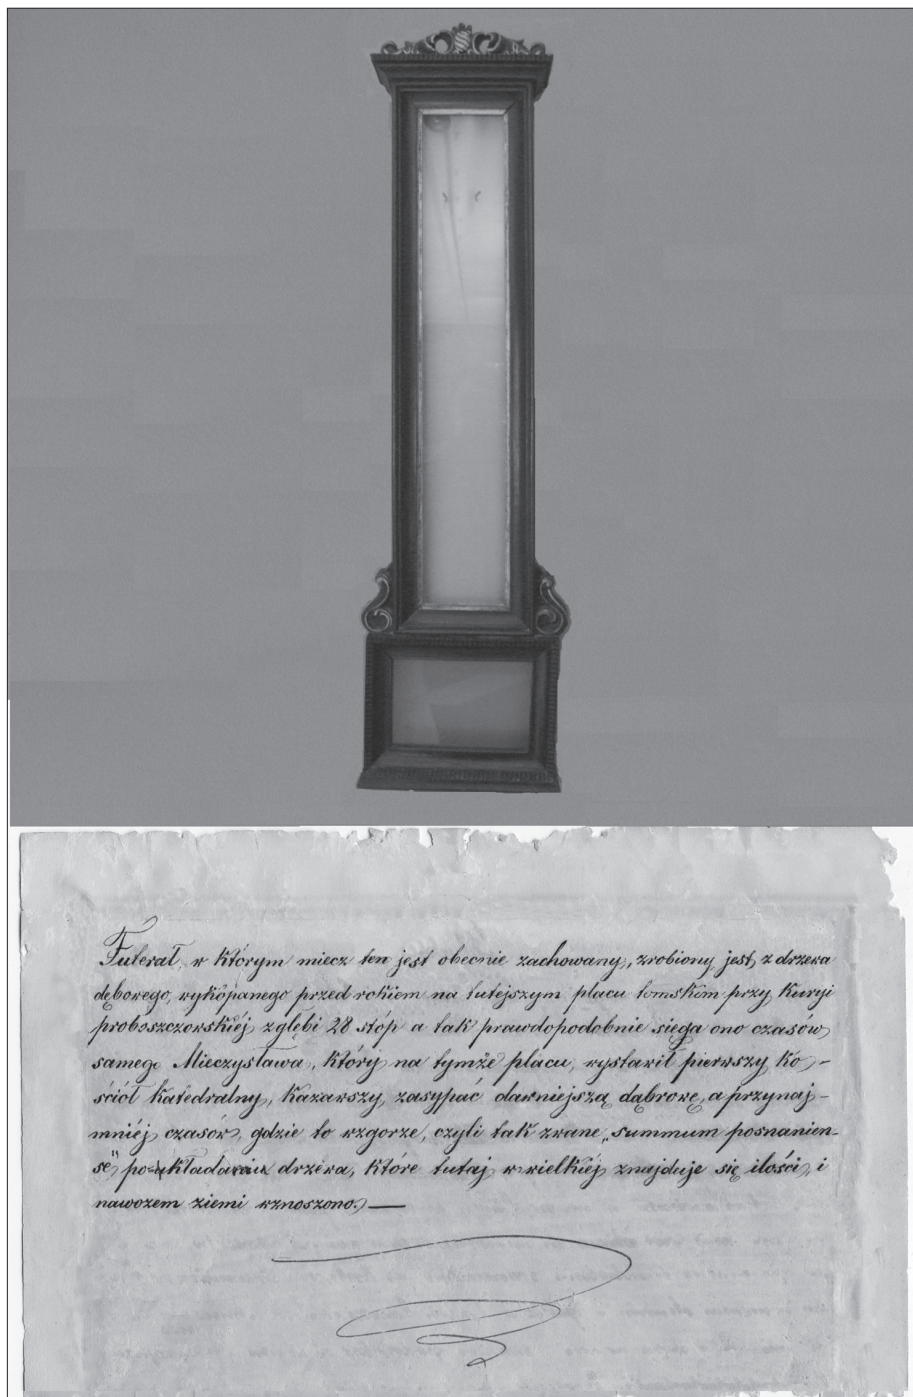 Futerał, w którym miecz ten jest obecnie zachowany, zrobiony jest z drzewa
dębowego, wykópanego przed rokiem na tutejszym placu tomskim przy Kuryi
proboszczowskiéj z głębi 28 stóp a tak prawdopodobnie sięga ono czasów
samego Mieczysława, który na tymże placu, wystawił pierwszy kó-
ściół Katedralny, kazawszy zasypać dawniejszą dąbrowę, a przynaj-
mniéj czasów, gdzie to wzgorze, czyli tak zwane „summum posnanien-
se" drzéwa, które tutaj w wielkiéj znajduje się ilości, i
nawozem ziemi wznoszono. —